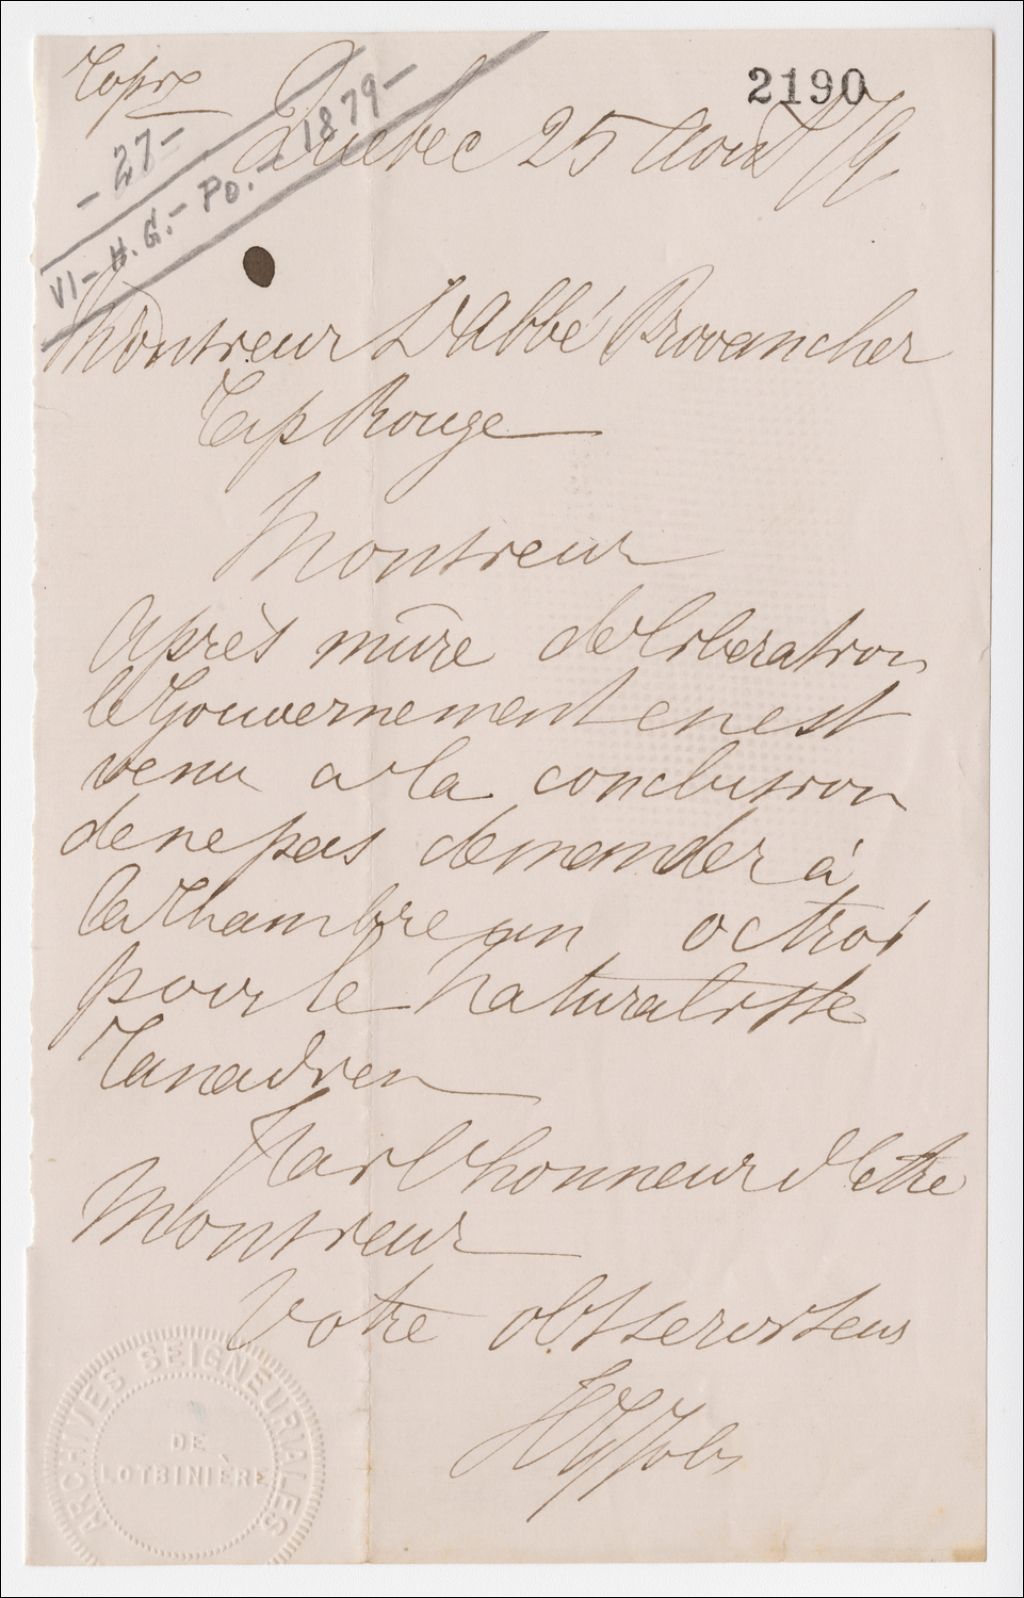 Copie
2190
- 27 -
Québec 25 Aout 79
VI - H. G. - Po. - 1879 -
Monsieur L'Abbé Provancher
Cap Rouge
Monsieur
Après mûre deliberation
le Gouvernement en est
venu a la conclusion
de ne pas demander à
la Chambre un octroi
pour le Naturaliste
Canadien
J'ai l'honneur d'etre
Monsieur
Votre obt serviteur
HG Joly
ARCHIVES SEIGNEURIALES
DE
LOTBINIÈRE